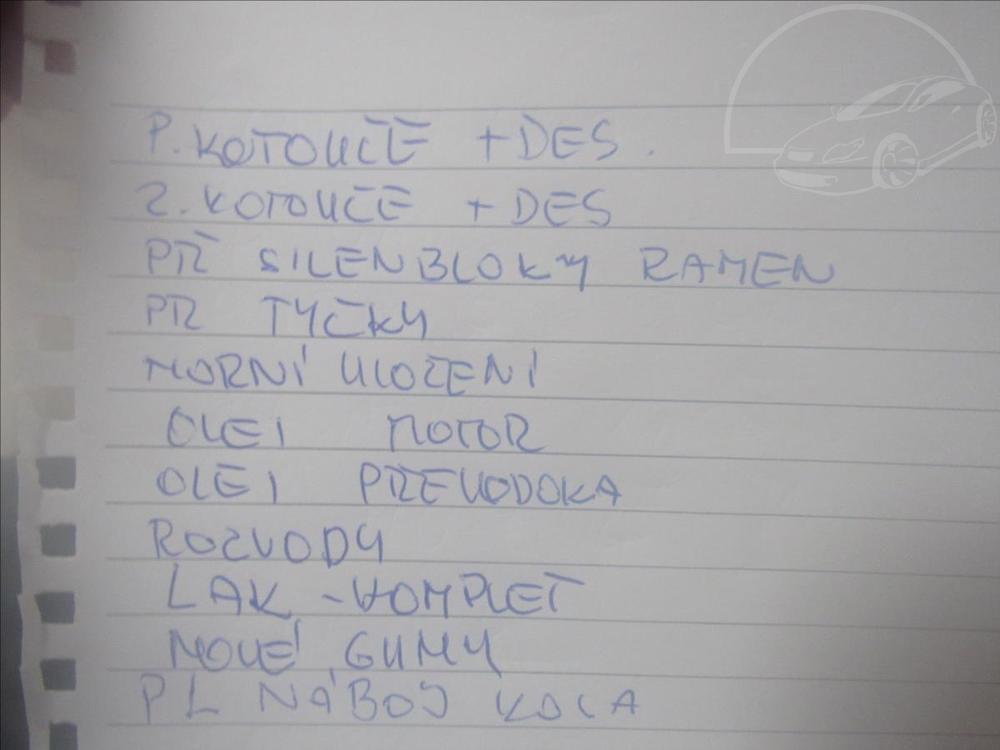 P. KOTOUČE + DES.
Z. KOTOUČE + DES
PŘ SILENBLOKY RAMEN
PR TYČKY
HORNÍ ULOZENÍ
OLEJ MOTOR
OLEJ PREVODOKA
ROZVODY
LAK - KOMPLET
NOVÉ GUMY
PL NÁBOJ KOLA